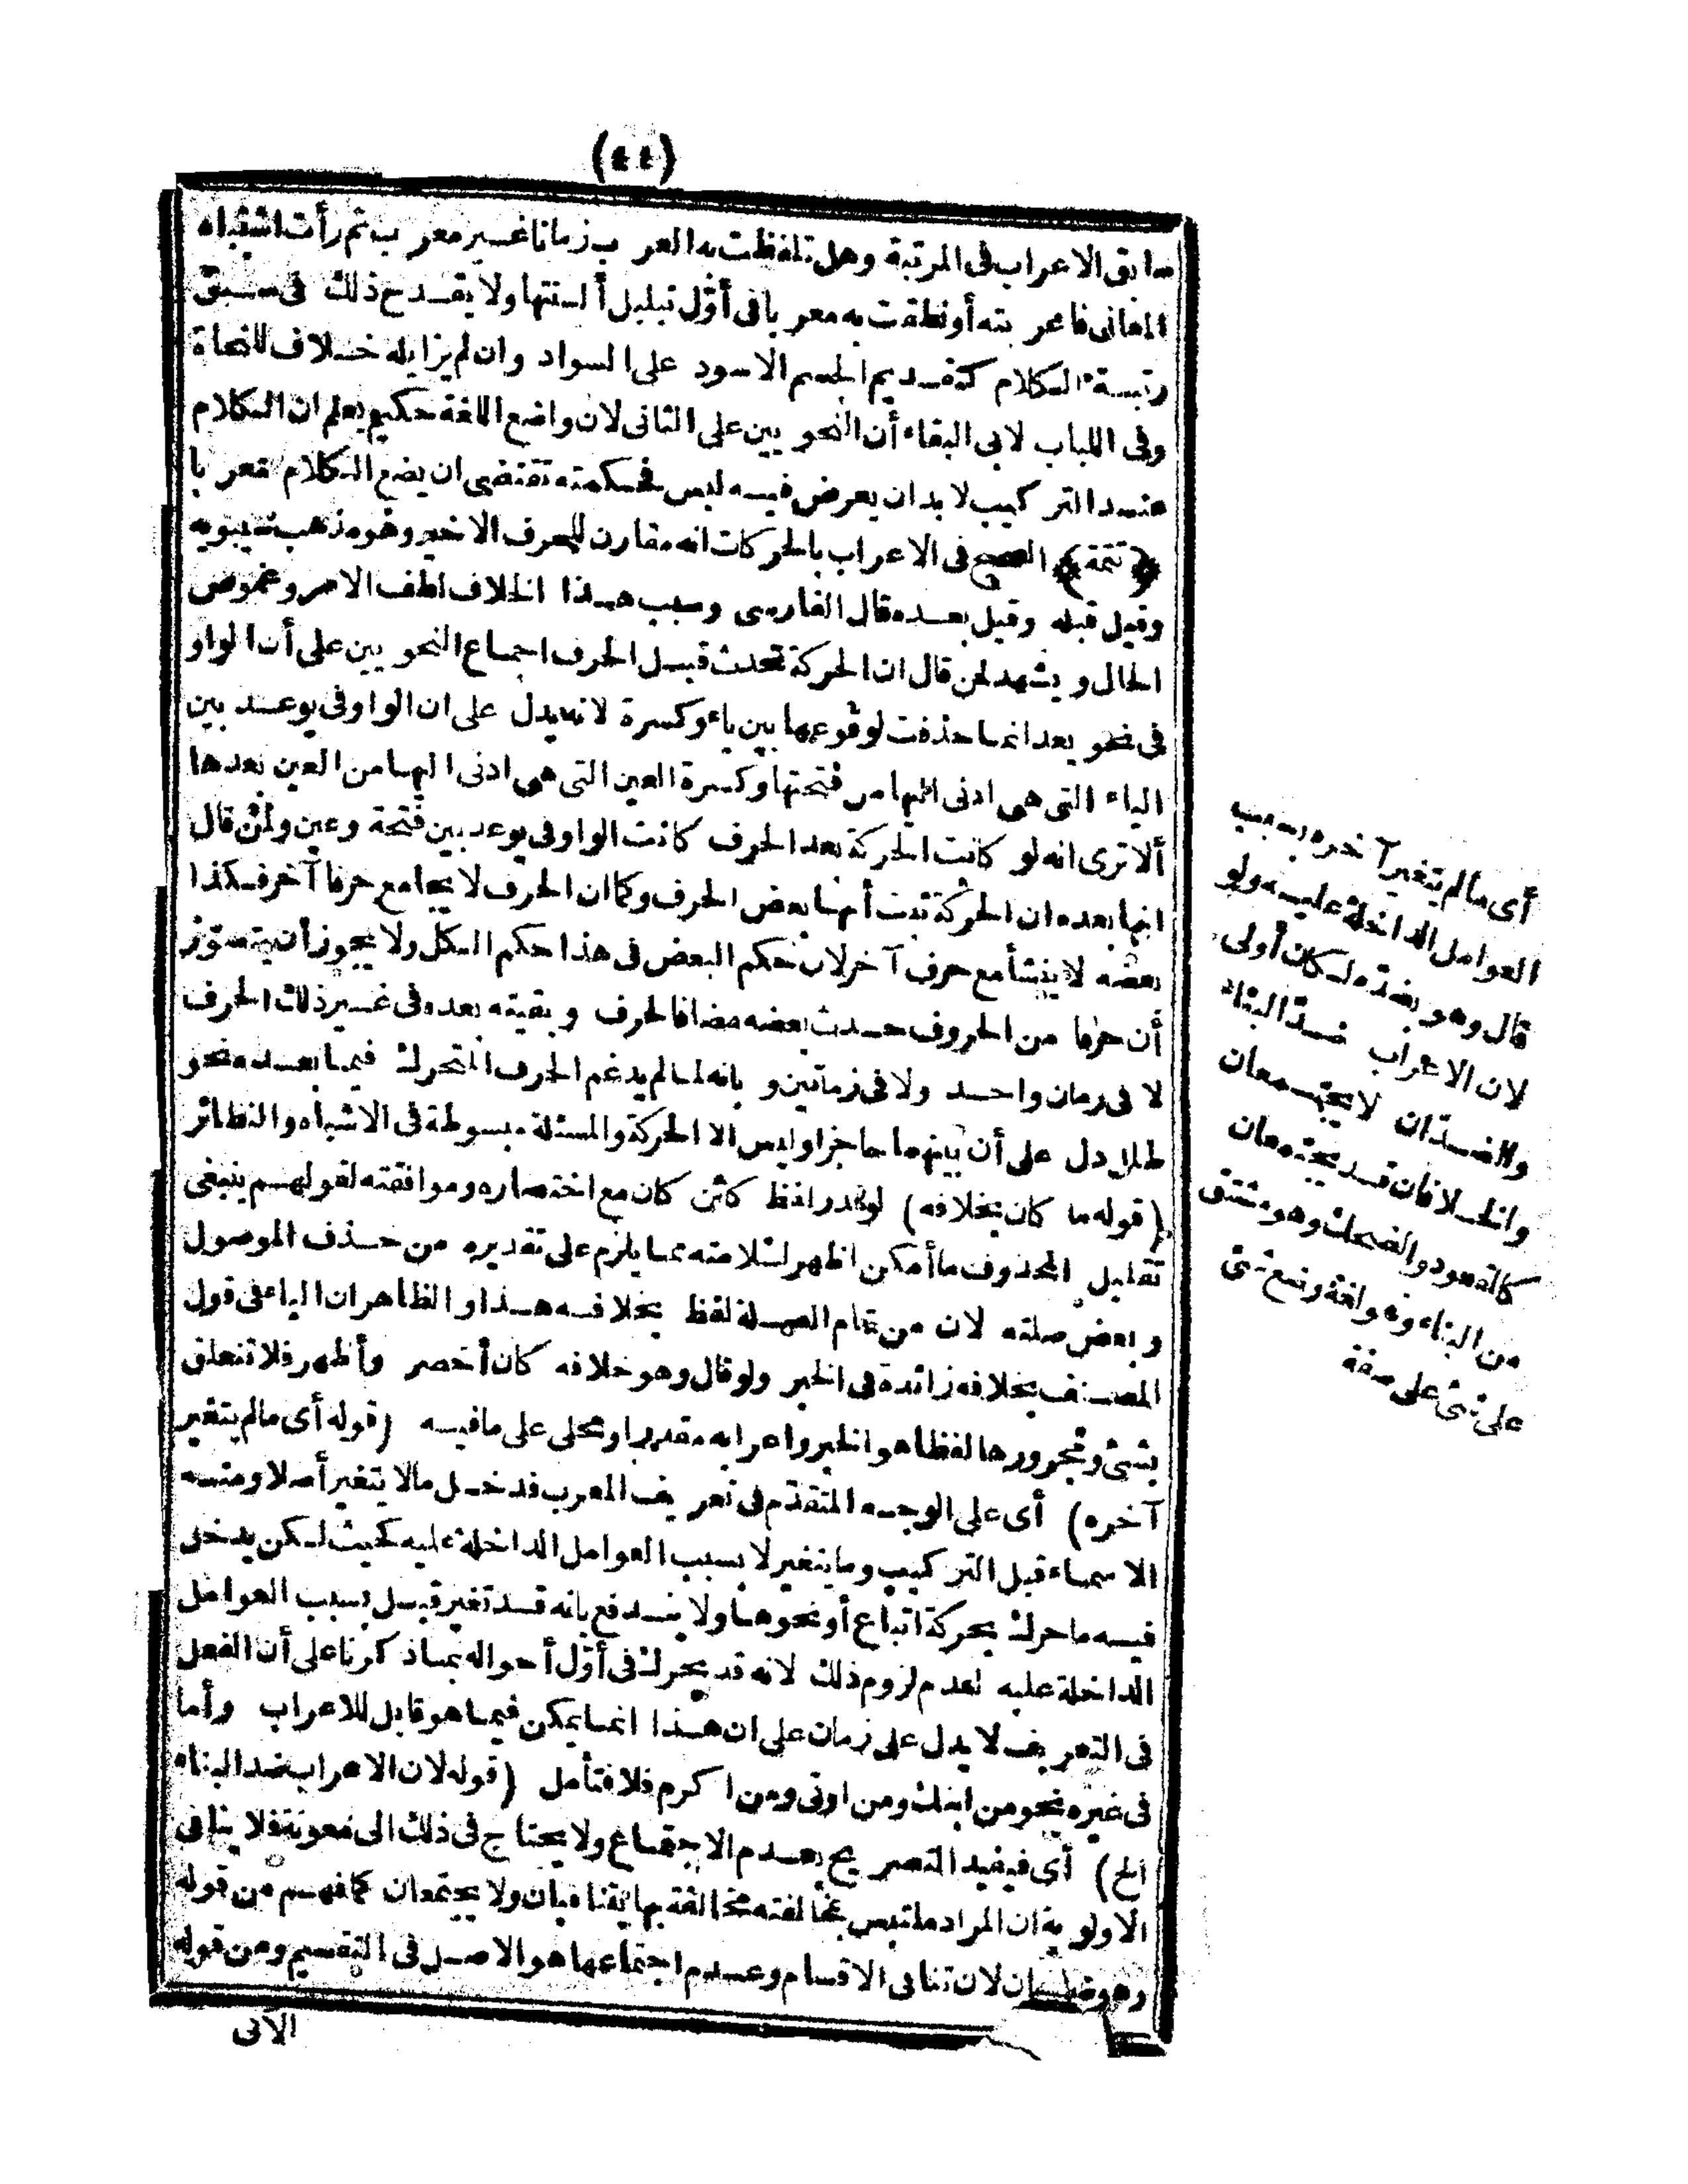 (٤٤)
سابق الاعراب فى المرتبة وهل تلفظت به العرب زمانا غير معرب ثم رأت اشتباه
المعانى فاعربته أو نطقت به معربا فى أوّل تبلبل ألسنتها ولا يقدح ذلك فى سبق
رتبة الكلام كتقديم الجسم الاسود على السواد وان لم يزايله خلاف للنحاة
وفى اللباب لابى البقاء أن النحويين على الثانى لان واضع اللغة حكيم يعلم ان الكلام
عند التركيب لا بد ان يعرض فيه لبس فحكمته تقتضى ان يضع الكلام معربا
﴿تتمة﴾ الصحيح فى الاعراب بالحركات انه مقارن للحرف الاخير وهو مذهب سيبويه
وقيل قبله وقيل بعده قال الفارسى وسبب هذا الخلاف لطف الامر وغموض
الحال ويشهد لمن قال ان الحركة تحدث قبل الحرف اجماع النحويين على أن الواو
فى نحو يعد انما حذفت لوقوعها بين ياء وكسرة لانه يدل على ان الواو فى يوعد بين
الياء التى هى ادنى اليها من فتحتها وكسرة العين التى هى ادنى اليها من العين بعدها
ألا ترى انه لو كانت الحركة بعد الحرف كانت الواو فى يوعد بين فتحة وعين ولمن قال
انها بعده ان الحركة ثبت أنها بعض الحرف وكما ان الحرف لا يجامع حرفا آخر فكذا
بعضه لا ينشأ مع حرف آخر لان حكم البعض فى هذا حكم الكل ولا يجوز أن يتصوّر
أن حرفا من الحروف حدث بعضه مضافا لحرف وبقيته بعده فى غير ذلك الحرف
لا فى زمان واحد ولا فى زمانين و بانه لما لم يدغم الحرف المتحرك فيما بعده نحو
طلل دل على أن بينهما حاجزا وليس الا الحركة والمسئلة مبسوطة فى الاشباه والنظائر
(قوله ما كان بخلافه) لو قدر لفظ كائن كان مع اختصاره وموافقته لقولهم ينبغى
تقليل المحذوف ما أمكن اظهر لسلامته مما يلزم على تقديره من حذف الموصول
وبعض صلته لان من تمام الصلة لفظ بخلافه هذا والظاهر ان الباء فى قول
المصنف بخلافه زائدة فى الخبر ولو قال وهو خلافه كان أخصر وأظهر فلا تتعلق
بشئ ومجرورها لفظا هو الخبر واعرابه مقدر او محلى على ما فيه (قوله أى ما لم يتغير
آخره) أى على الوجه المتقدّم فى تعريف المعرب فدخل ما لا يتغير أصلا ومنه
الاسماء قبل التركيب وما يتغير لا بسبب العوامل الداخلة عليه كحيث لكن يدخل
فيه ما حرك بحركة اتباع أو نحوها ولا يندفع بانه قد تغير قبل بسبب العوامل
الداخلة عليه لعدم لزوم ذلك لانه قد يحرك فى أوّل أحواله بما ذكرنا على أن الفعل
فى التعريف لا يدل على زمان على ان هذا انما يمكن فيما هو قابل للاعراب وأما
فى غيره نحو من ابنك ومن اوتى ومن اكرم فلا فتأمل (قوله لان الاعراب ضد البناء
الخ) أى فيفيد التصريح بعدم الاجتماع ولا يحتاج فى ذلك الى معونة فلا ينافى
الاولوية ان المراد ملتبس بمخالفته مخالفة بها يتنافيان ولا يجتمعان كما فهم من قوله
وهو لان تنافى الاقسام وعدم اجتماعها هو الاصل فى التقسيم ومن قوله
الآتى
أى ما لم يتغير آخره بسبب
العوامل الداخلة عليه ولو
قال وهو بضدّه لكان أولى
لان الاعراب ضدّ البناء
والضدّان لا يجتمعان
والخلافان قد يجتمعان
كالقعود والضحك وهو مشتق
من البناء وهو لغة وضع شئ
على شئ على صفة